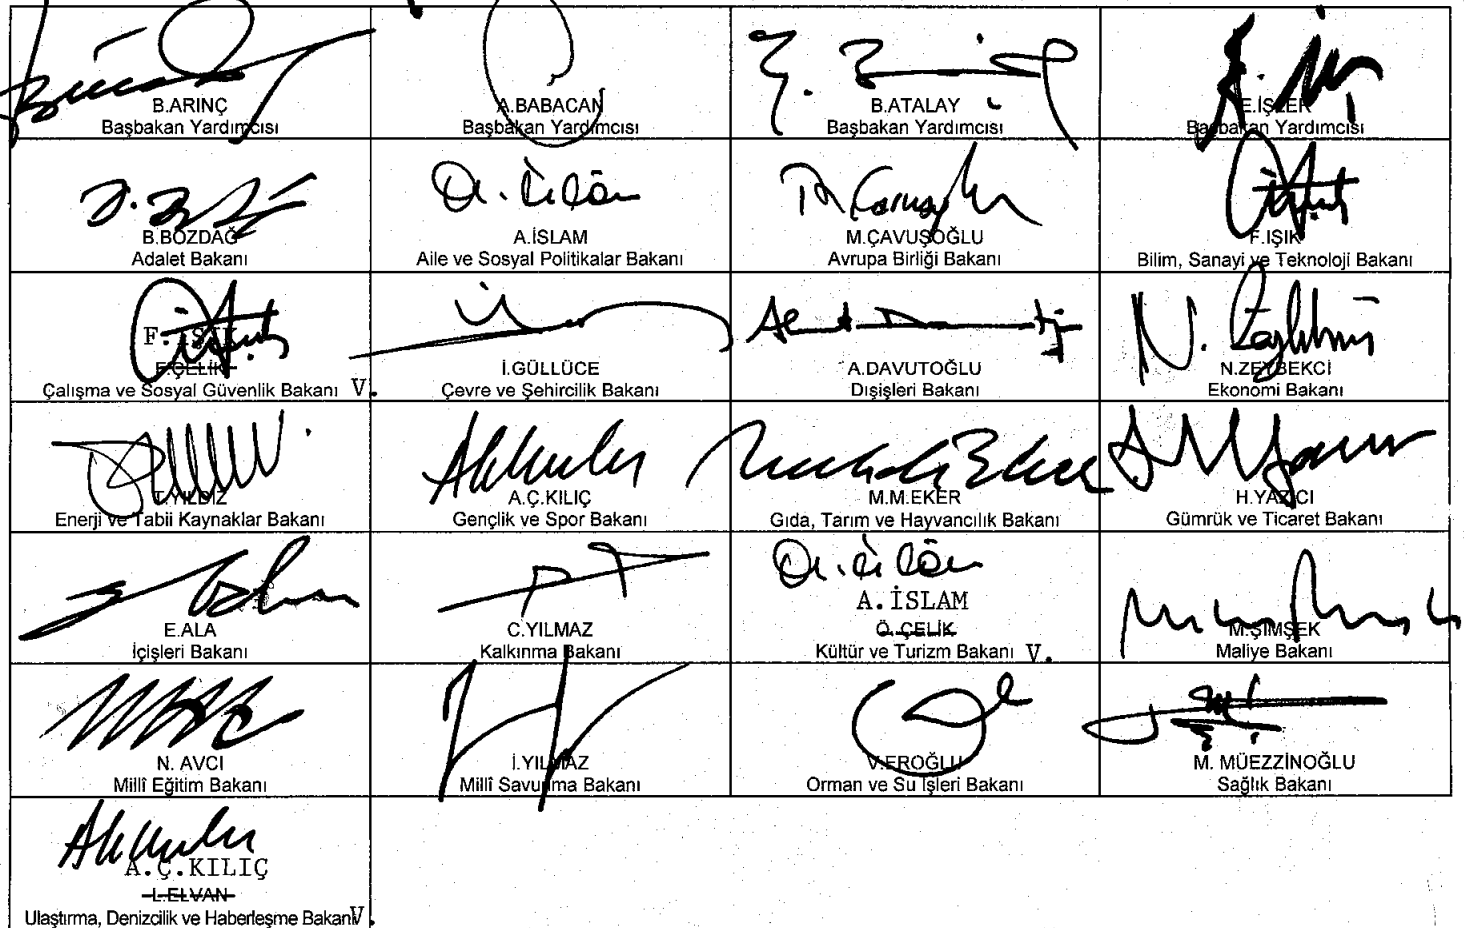 B.ARINÇ
Başbakan Yardımcısı
A.BABACAN
Başbakan Yardımcısı
B.ATALAY
Başbakan Yardımcısı
E.İŞLER
Başbakan Yardımcısı
B.BOZDAĞ
Adalet Bakanı
A.İSLAM
Aile ve Sosyal Politikalar Bakanı
M.ÇAVUŞOĞLU
Avrupa Birliği Bakanı
F.IŞIK
Bilim, Sanayi ve Teknoloji Bakanı
F. IŞIK
F.ÇELİK
Çalışma ve Sosyal Güvenlik Bakanı V.
İ.GÜLLÜCE
Çevre ve Şehircilik Bakanı
A.DAVUTOĞLU
Dışişleri Bakanı
N.ZEYBEKCİ
Ekonomi Bakanı
T.YILDIZ
Enerji ve Tabii Kaynaklar Bakanı
A.Ç.KILIÇ
Gençlik ve Spor Bakanı
M.M.EKER
Gıda, Tarım ve Hayvancılık Bakanı
H.YAZICI
Gümrük ve Ticaret Bakanı
E.ALA
İçişleri Bakanı
C.YILMAZ
Kalkınma Bakanı
A.İSLAM
Ö.ÇELİK
Kültür ve Turizm Bakanı V.
M.ŞİMŞEK
Maliye Bakanı
N. AVCI
Millî Eğitim Bakanı
İ.YILMAZ
Millî Savunma Bakanı
V.EROĞLU
Orman ve Su İşleri Bakanı
M. MÜEZZİNOĞLU
Sağlık Bakanı
A.Ç.KILIÇ
L.ELVAN
Ulaştırma, Denizcilik ve Haberleşme Bakanı V.